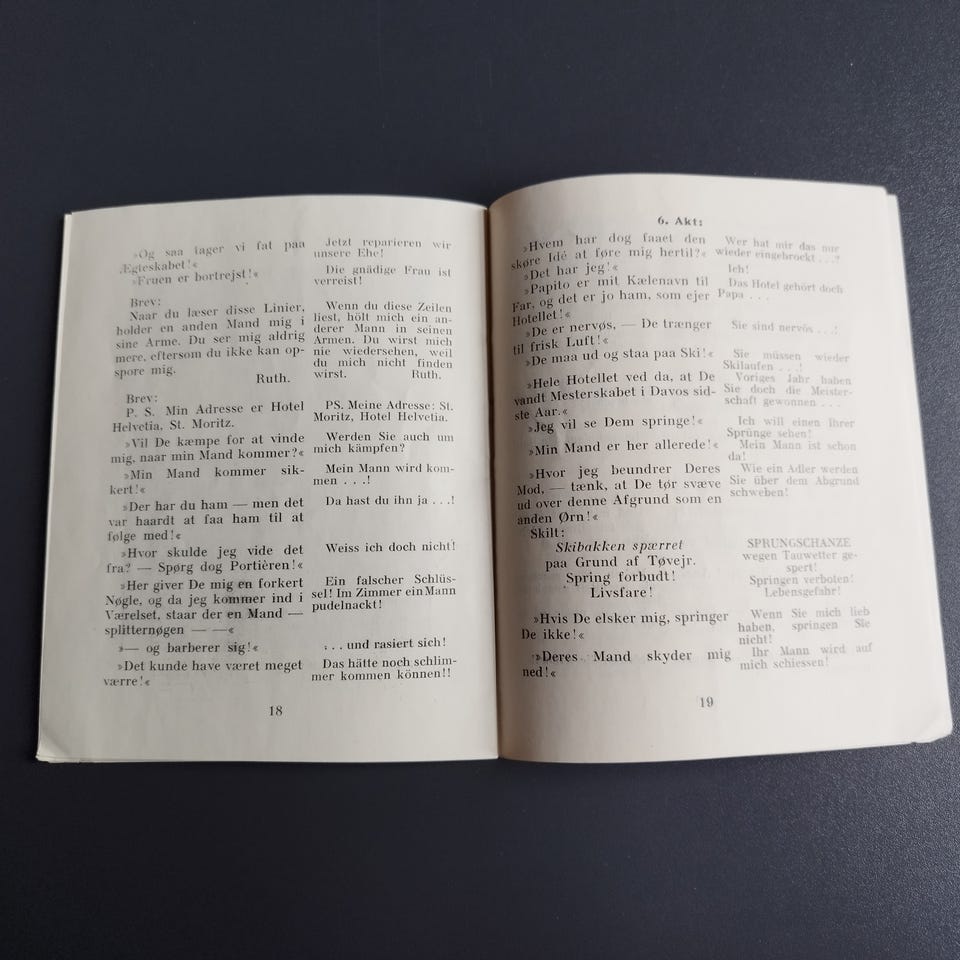 »Og saa tager vi fat paa
Ægteskabet!«
»Fruen er bortrejst!«
Brev:
Naar du læser disse Linier,
holder en anden Mand mig i
sine Arme. Du ser mig aldrig
mere, eftersom du ikke kan op-
spore mig.
Ruth.
Brev:
P. S. Min Adresse er Hotel
Helvetia, St. Moritz.
»Vil De kæmpe for at vinde
mig, naar min Mand kommer?«
»Min Mand kommer sik-
kert!«
»Der har du ham — men det
var haardt at faa ham til at
følge med!«
»Hvor skulde jeg vide det
fra? — Spørg dog Portièren!«
»Her giver De mig en forkert
Nøgle, og da jeg kommer ind i
Værelset, staar der en Mand —
splitternøgen — —«
»— og barberer sig!«
»Det kunde have været meget
værre!«
Jetzt reparieren wir
unsere Ehe!
Die gnädige Frau ist
verreist!
Wenn du diese Zeilen
liest, hölt mich ein an-
derer Mann in seinen
Armen. Du wirst mich
nie wiedersehen, weil
du mich nicht finden
wirst. Ruth.
PS. Meine Adresse: St.
Moritz, Hotel Helvetia.
Werden Sie auch um
mich kämpfen?
Mein Mann wird kom-
men . . .!
Da hast du ihn ja . . .!
Weiss ich doch nicht!
Ein falscher Schlüs-
sel! Im Zimmer ein Mann
pudelnackt!
. . . und rasiert sich!
Das hätte noch schlim-
mer kommen können!!
18
6. Akt:
»Hvem har dog faaet den
skøre Idé at føre mig hertil?«
»Det har jeg!«
»Papito er mit Kælenavn til
Far, og det er jo ham, som ejer
Hotellet!«
»De er nervøs, — De trænger
til frisk Luft!«
»De maa ud og staa paa Ski!«
»Hele Hotellet ved da, at De
vandt Mesterskabet i Davos sid-
ste Aar.«
»Jeg vil se Dem springe!«
»Min Mand er her allerede!«
»Hvor jeg beundrer Deres
Mod, — tænk, at De tør svæve
ud over denne Afgrund som en
anden Ørn!«
Skilt:
Skibakken spærret
paa Grund af Tøvejr.
Spring forbudt!
Livsfare!
»Hvis De elsker mig, springer
De ikke!«
»Deres Mand skyder mig
ned!«
Wer hat mir das nur
wieder eingebrockt . . .?
Ich!
Das Hotel gehört doch
Papa . . .
Sie sind nervös . . .!
Sie müssen wieder
Skilaufen . . .!
Voriges Jahr haben
Sie doch die Meister-
schaft gewonnen . . .
Ich will einen Ihrer
Sprünge sehen!
Mein Mann ist schon
da!
Wie ein Adler werden
Sie über dem Abgrund
schweben!
SPRUNGSCHANZE
wegen Tauwetter ge-
spert!
Springen verboten!
Lebensgefahr!
Wenn Sie mich lieb
haben, springen Sie
nicht!
Ihr Mann wird auf
mich schiessen!
19